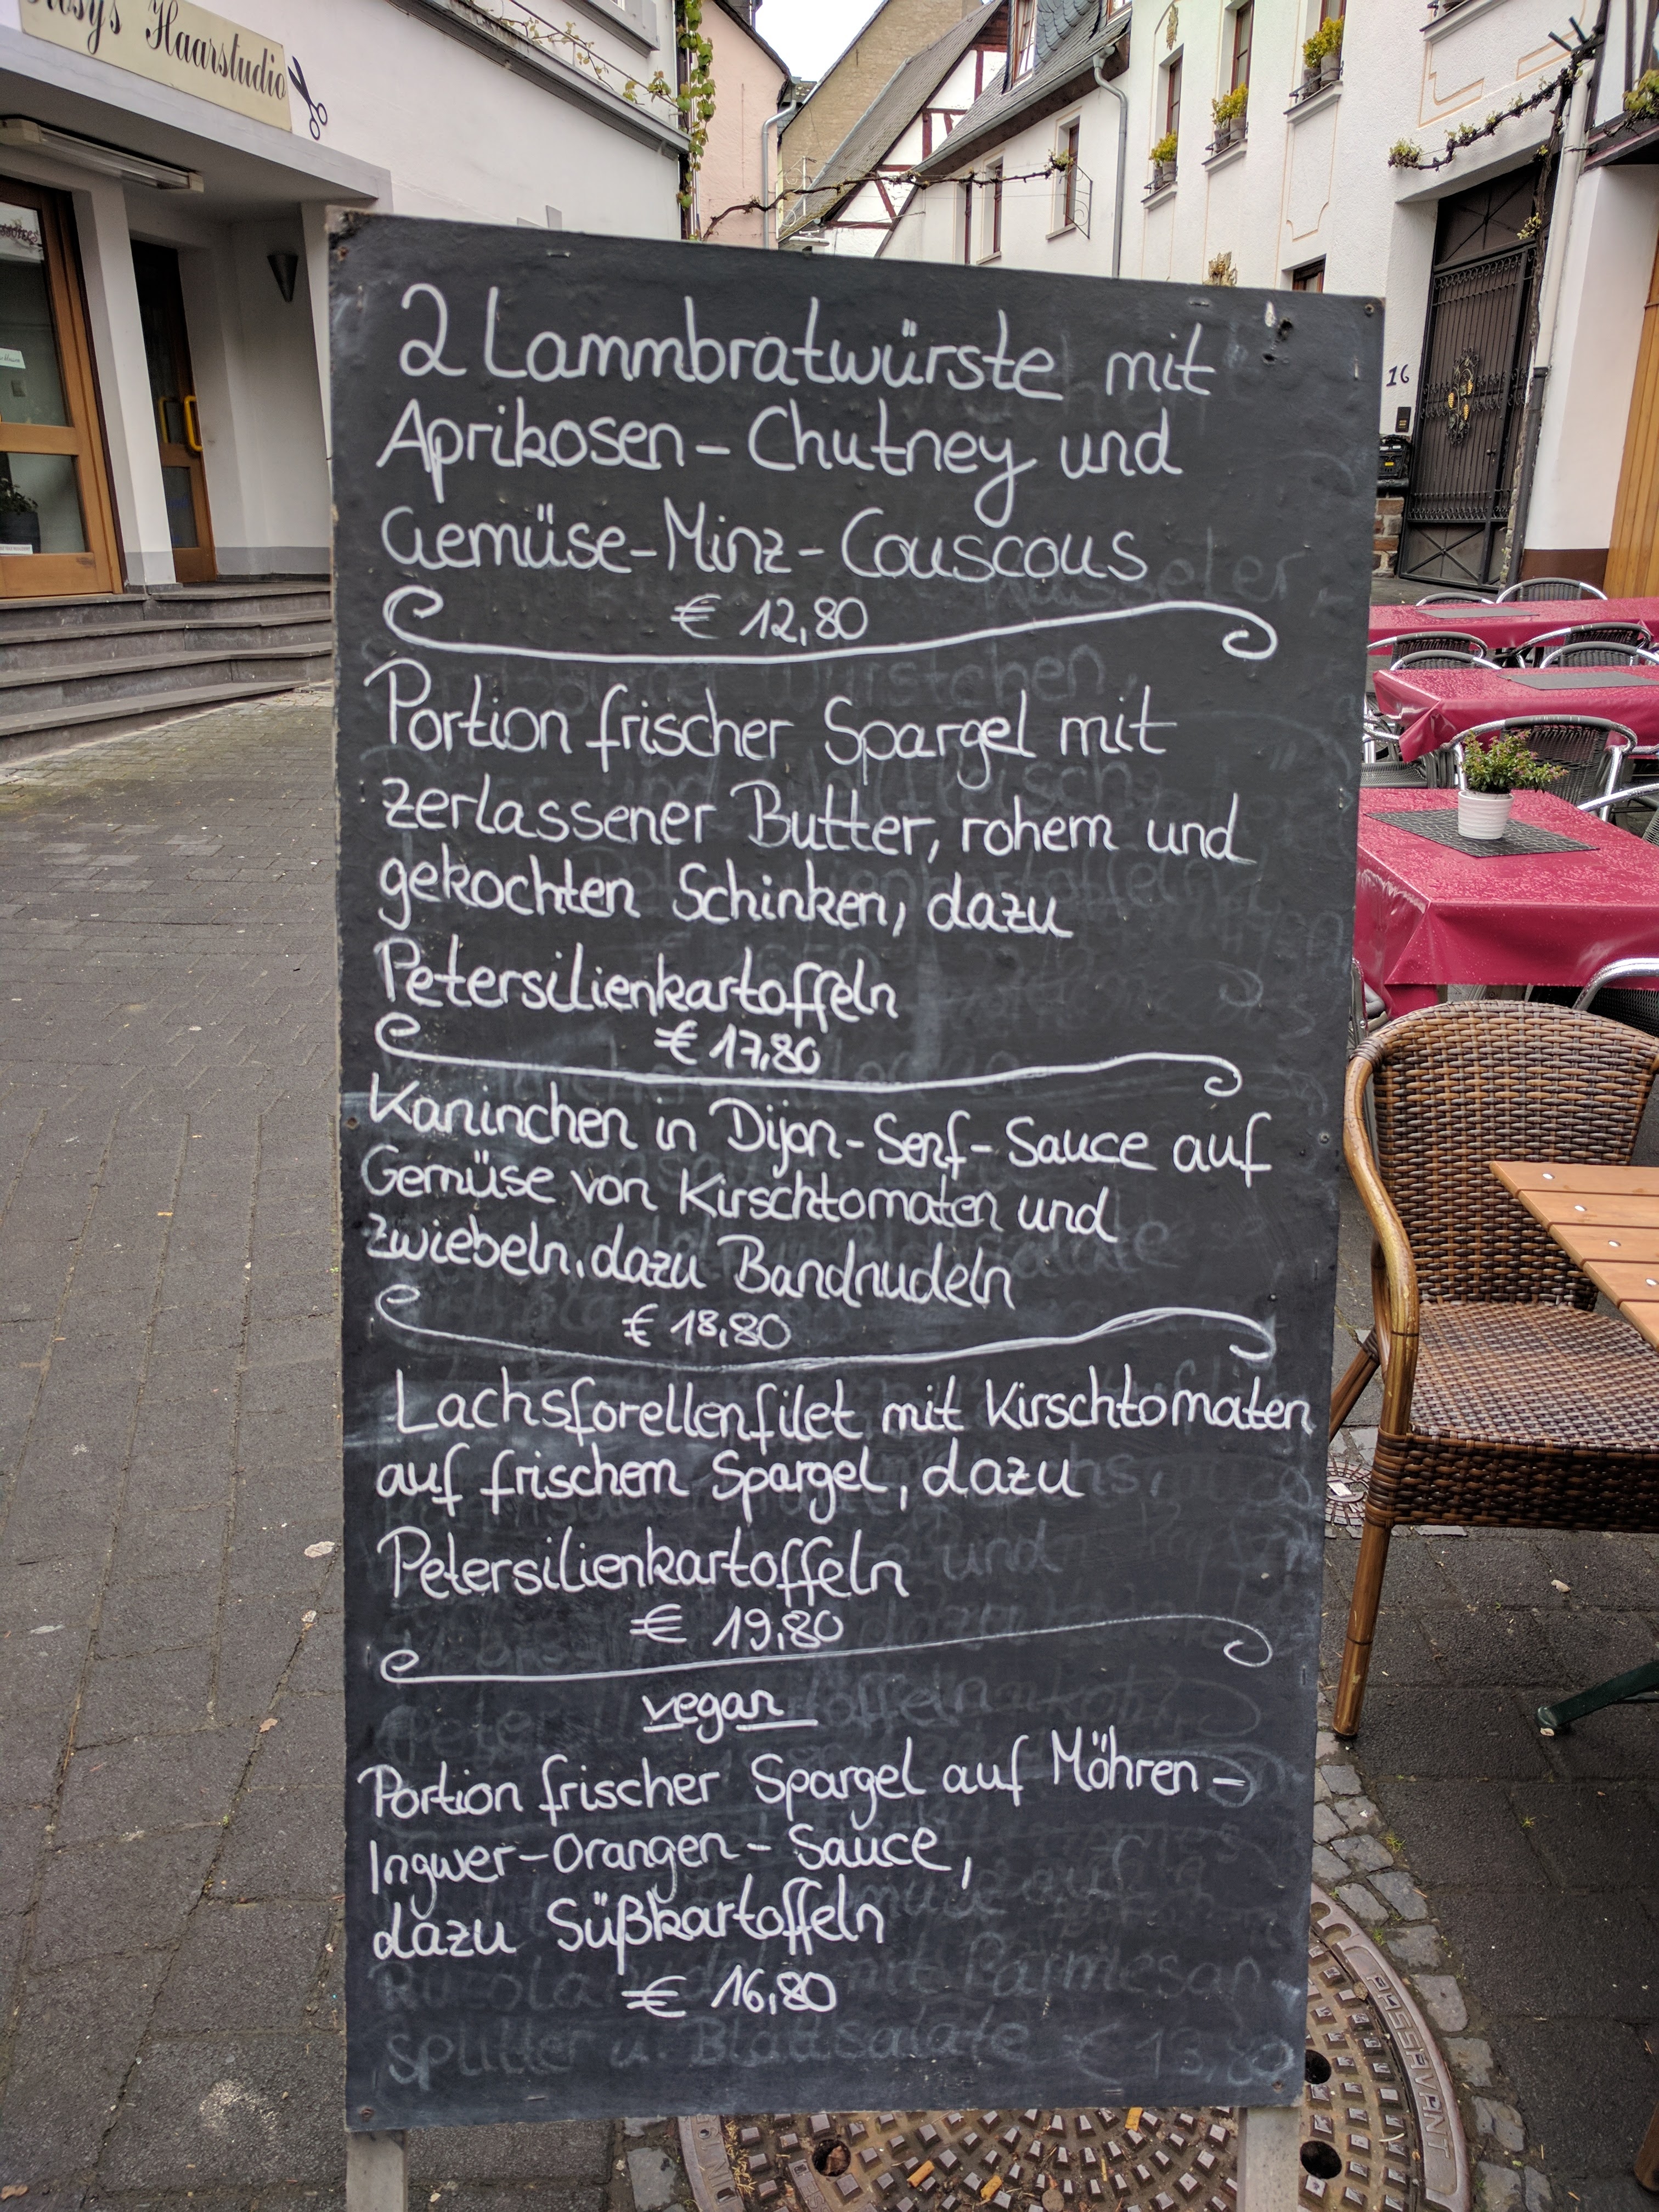 Rosy's Haarstudio
16
2 Lammbratwürste mit
Aprikosen-Chutney und
Gemüse-Minz-Couscous
€ 12,80
Portion frischer Spargel mit
zerlassener Butter, rohem und
gekochten Schinken, dazu
Petersilienkartoffeln
€ 17,80
Kaninchen in Dijon-Senf-Sauce auf
Gemüse von Kirschtomaten und
zwiebeln, dazu Bandnudeln
€ 18,80
Lachsforellenfilet mit Kirschtomaten
auf frischem Spargel, dazu
Petersilienkartoffeln
€ 19,80
vegan
Portion frischer Spargel auf Möhren-
Ingwer-Orangen-Sauce,
dazu Süßkartoffeln
€ 16,80
mit Parmesan
splitter u. Blattsalate €